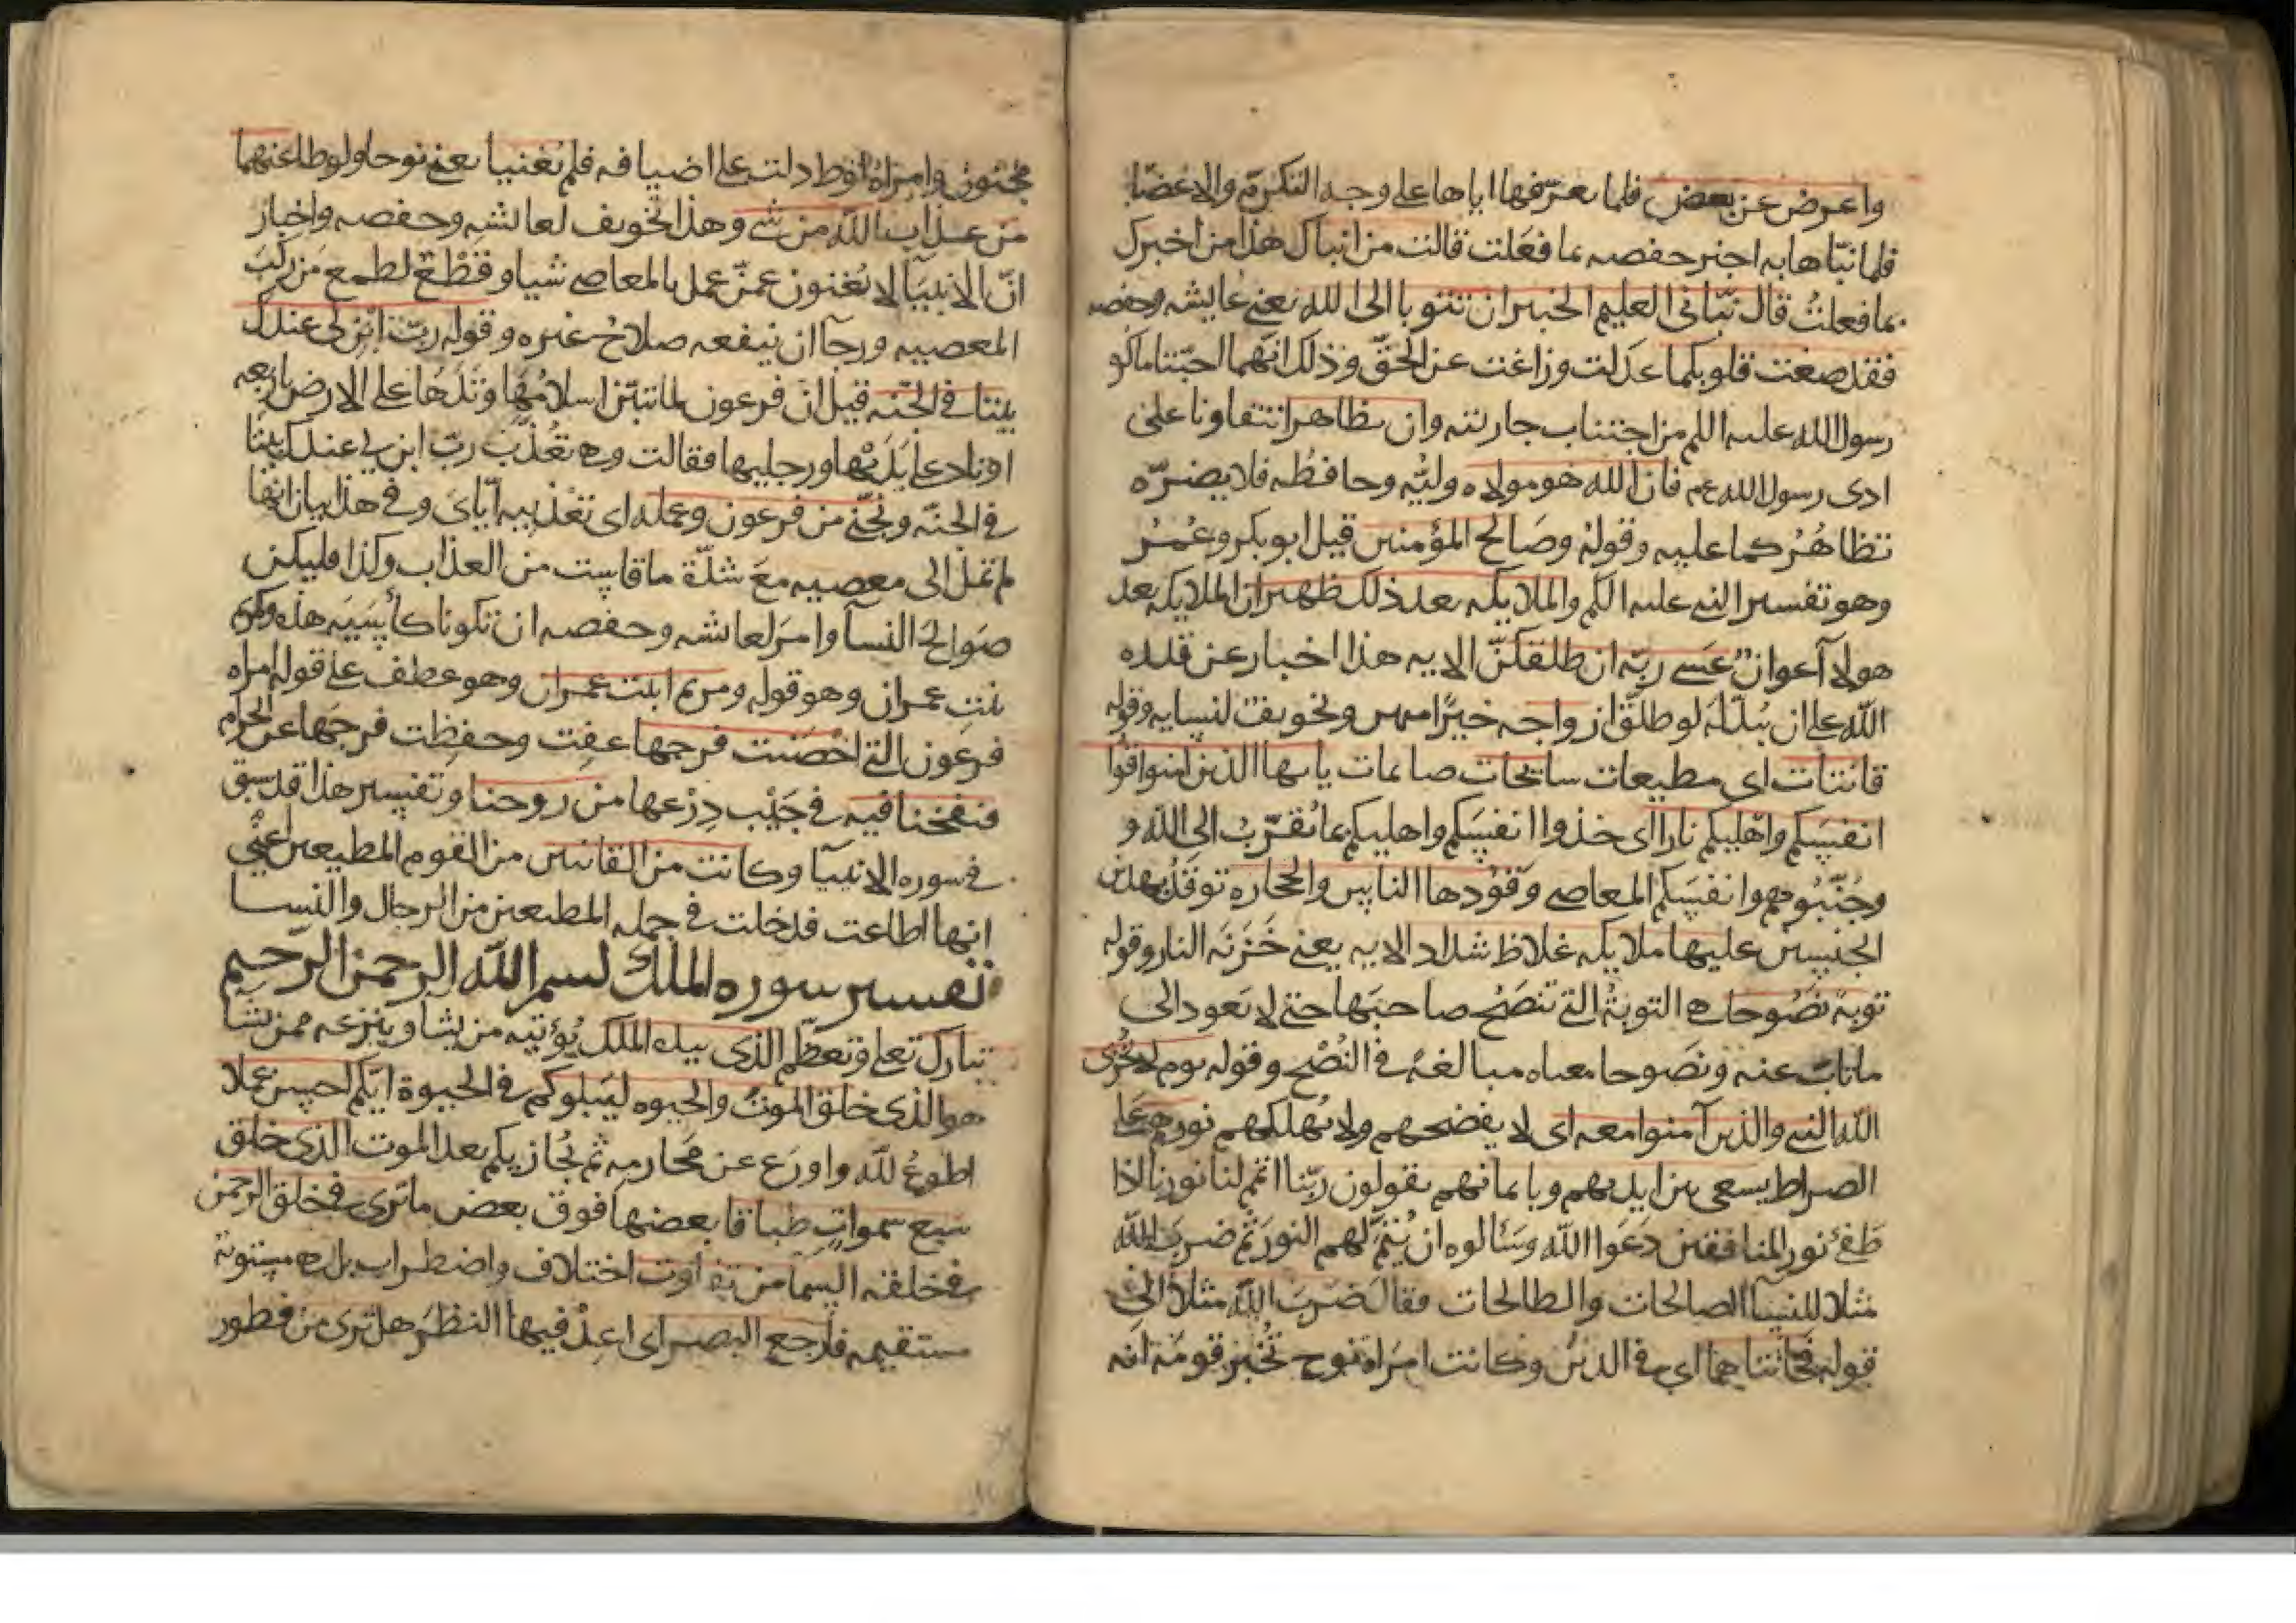 واعرض عن بعض فلما يعرّفها اياها على وجه التكرّم والاغضا
فلما نبّاها به اخبر حفصه بما فعلت قالت من انباك هذا من اخبرك
بما فعلتُ قال نبّاني العليم الخبير ان تتوبا الى الله يعني عايشه وحفصه
فقد صغت قلوبكما عدلت وزاغت عن الحقّ وذلك انهما احبّتا ما كره
رسول الله عليه السلم من اجتناب جاريته وان تظاهرا تتعاونا على
اذى رسول الله عم فان الله هو مولاه وليُّه وحافظُه فلا يضرّه
تظاهُرُكما عليه وقولهُ وصَالح المؤمنين قيل ابو بكر وعُمَرُ
وهو تفسير النبي عليه السلم والملايكه بعد ذلك ظهير ان الملايكه بعد
هولآ اعوانٌ عَسى ربّه ان طلقكنّ الايه هذا اخبار عن قدره
الله على ان يُبدّلهُ لو طلّق ازواجه خيرًا منهن وتخويف لنسايه وقوله
قانتات اى مطيعات سايحات صايمات يايها الذين امنوا قُوا
انفسَكم واهليكم نارا اى خذوا انفسَكم واهليكم بما يُقرّبُ الى الله و
وجُنّبُوهم وانفسَكم المعاصى وقودها الناس والحجاره توقدُ بهذين
الجنسين عليها ملايكه غلاظ شداد الايه يعنى خَزَنَه النار وقوله
توبهً نَصُوحا هى التوبةُ التى تنصَحُ صاحبَها حتى لا يَعود الى
ما تابَ عنه ونصَوحا معناه مبالغهً فى النُصْح وقوله يوم لا يُخزى
الله النبى والذين آمنوا معه اى لا يفضحهم ولا يُهلكهم نورهم على
الصراط يسعى بين ايديهم وبايمانهم يقولون ربّنا اتمم لنا نورنا اذا
طَفِئ نور المنافقين دَعَوا الله وسَئالوه ان يُتمّ لهم النورَ ثم ضربَ الله
مثلا للنسآ الصالحات والطالحات فقال ضرَبَ الله مثلا الى
قوله فخانتاهما اى فى الدين وكانت امرَاه نوح تُخبر قومَه انه
مجنون وامراهُ لوط دلت على اضيافه فلم يُغنيا يعنى نوحا ولوطا عنهما
من عذاب الله من شى وهذا تخويف لعايشه وحفصه واخبار
انّ الانبيآ لا يُغنون عمّن عمل بالمعاصى شيا وقَطْعٌ لطمع مَن ركبَ
المعصيه ورجآ ان ينفعه صلاحُ غيره وقوله ربّ ابن لى عندك
بيتا فى الجنّه قيل انّ فرعون لما تبيّن اسلامُهَا وتَدَها على الارض باربعه
اوتاد على يَدَيْها ورجليها فقالت وهى تُعَذَّبُ ربّ ابن لى عندك بيتًا
فى الجنّه ونجّنى من فرعون وعمله اى تعْذيبه ايّاىَ وفى هذا بيان انها
لم تمِلْ الى معصيه معَ شدّة ما قاسَت من العذاب وكذا فليكن
صَوالحُ النسآ وامرَ لعايشه وحفصه ان تكونا كآسيَه هذه وكمريَم
بنتِ عمران وهو قوله ومريَم ابنت عمران وهو عطف على قوله امراه
فرعون التى احْصَنت فرجها عفِت وحفظِت فرجَها عن الحرام
فنفخنا فيه فى جَيْب دِرْعها من روحنا وتفسير هذا قد سبق
فى سوره الانبيآ وكانت من القانتين من القوم المطيعين اعنى
انها اطاعت فدخلت فى جمله المطيعين من الرجال والنسا
تفسير سوره الملك بسم الله الرحمن الرحيم
تبارك تعلى وتعظّم الذى بيده الملك يُؤتيه من يشا وينزعه ممن يشا
هو الذى خلق الموتَ والحيوه ليَبلوكم فى الحيوة ايّكم احسن عملا
اطوعُ لله واورَع عن مَحارمه ثم يُجازيكم بعد الموت الذى خلق
سَبع سموات طباقا بعضها فوق بعض ما ترى فى خلق الرحمن
فى خلقه السما من تفاوت اختلاف واضطراب بل هى مستوية
مستقيمه فارجع البصر اى اعِدْ فيها النظَرَ هل ترى من فطور